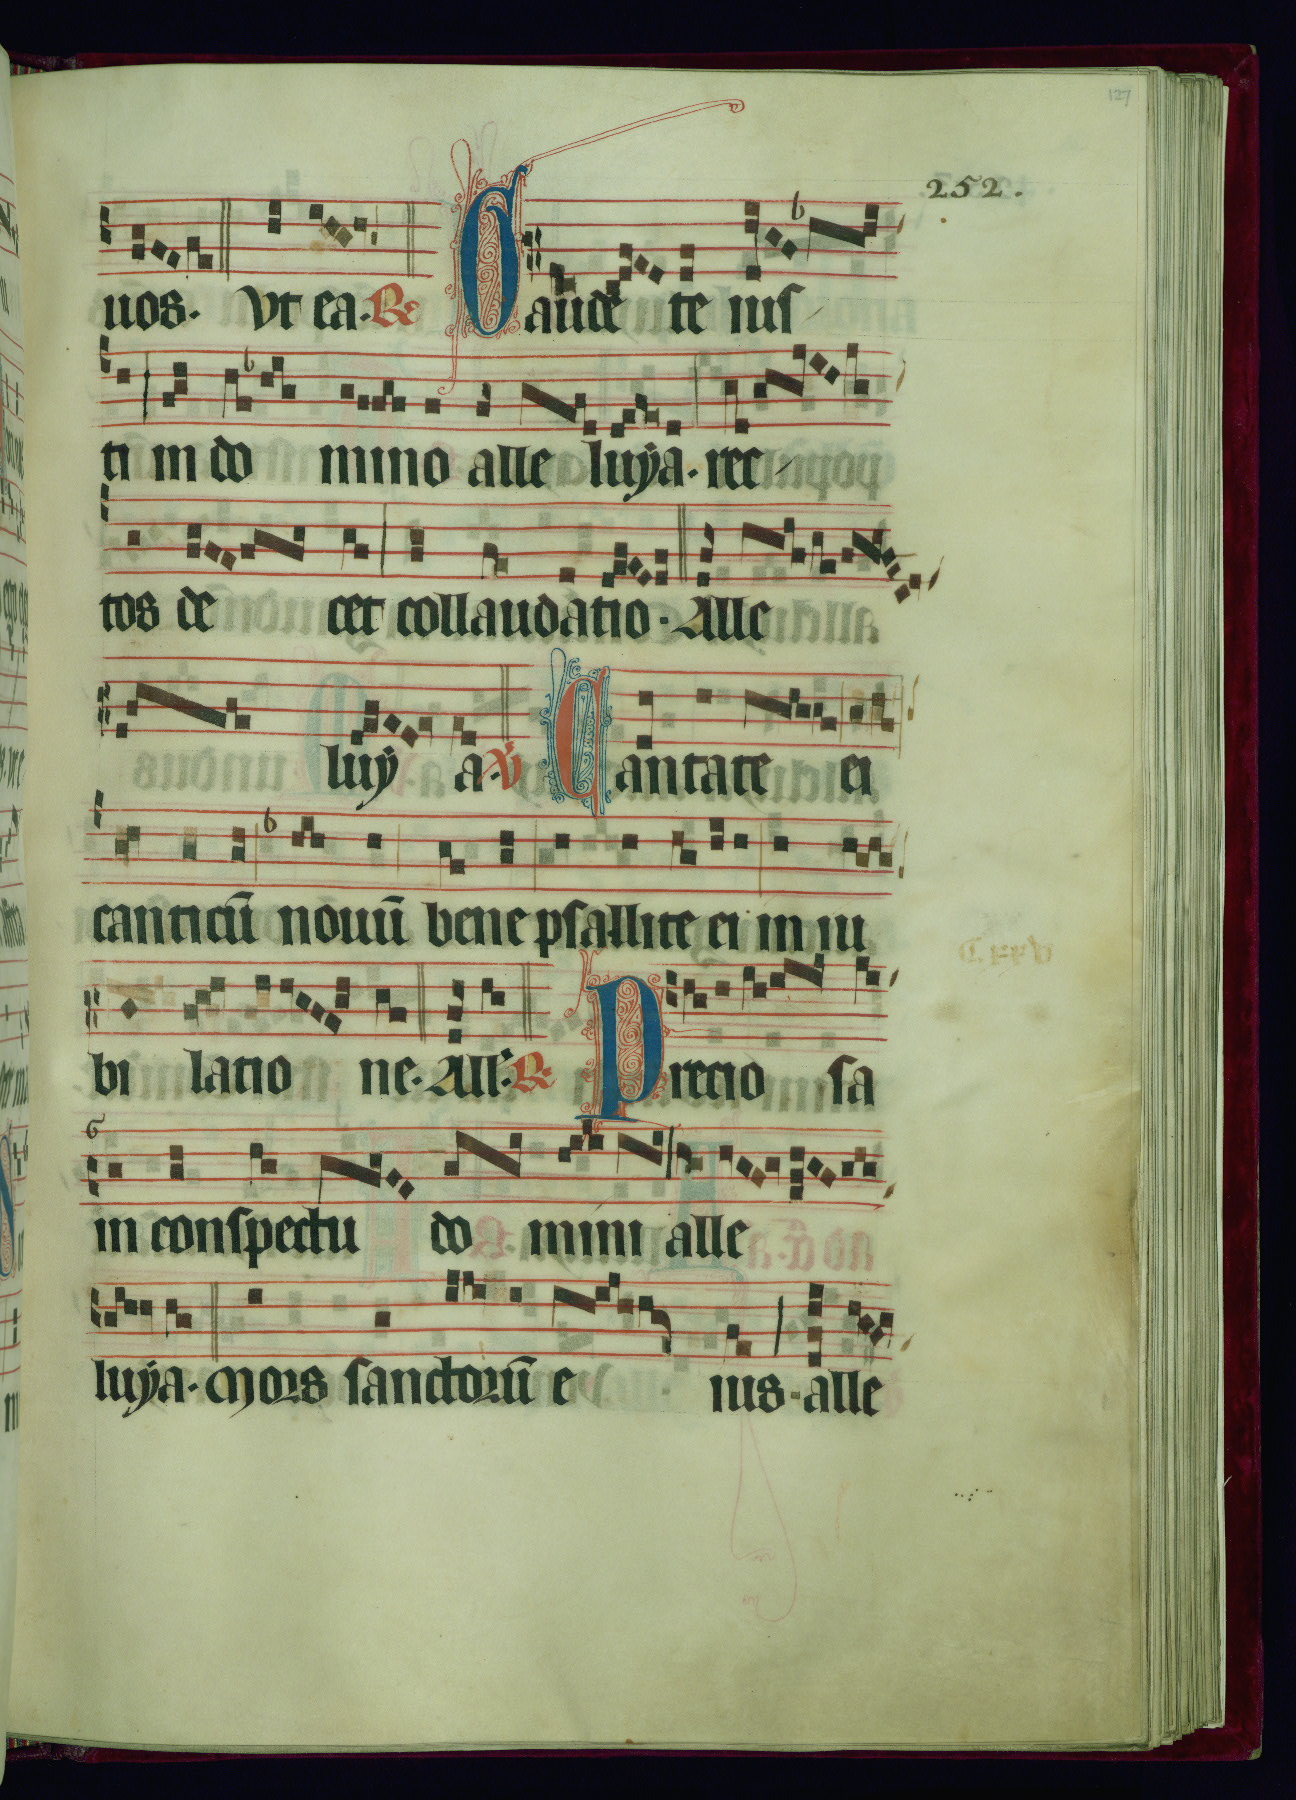 127
252.
uos. Vt ea. R Gaude te ius
ti in do mino alle luÿa. rec
tos de cet collaudatio. Alle
luÿ a. V Cantate ei
canticū nouū bene psallite ei in iu
bi latio ne. All'. R Precio sa
in conspectu do mini alle
luÿa. Mors sanctorū e ius. alle